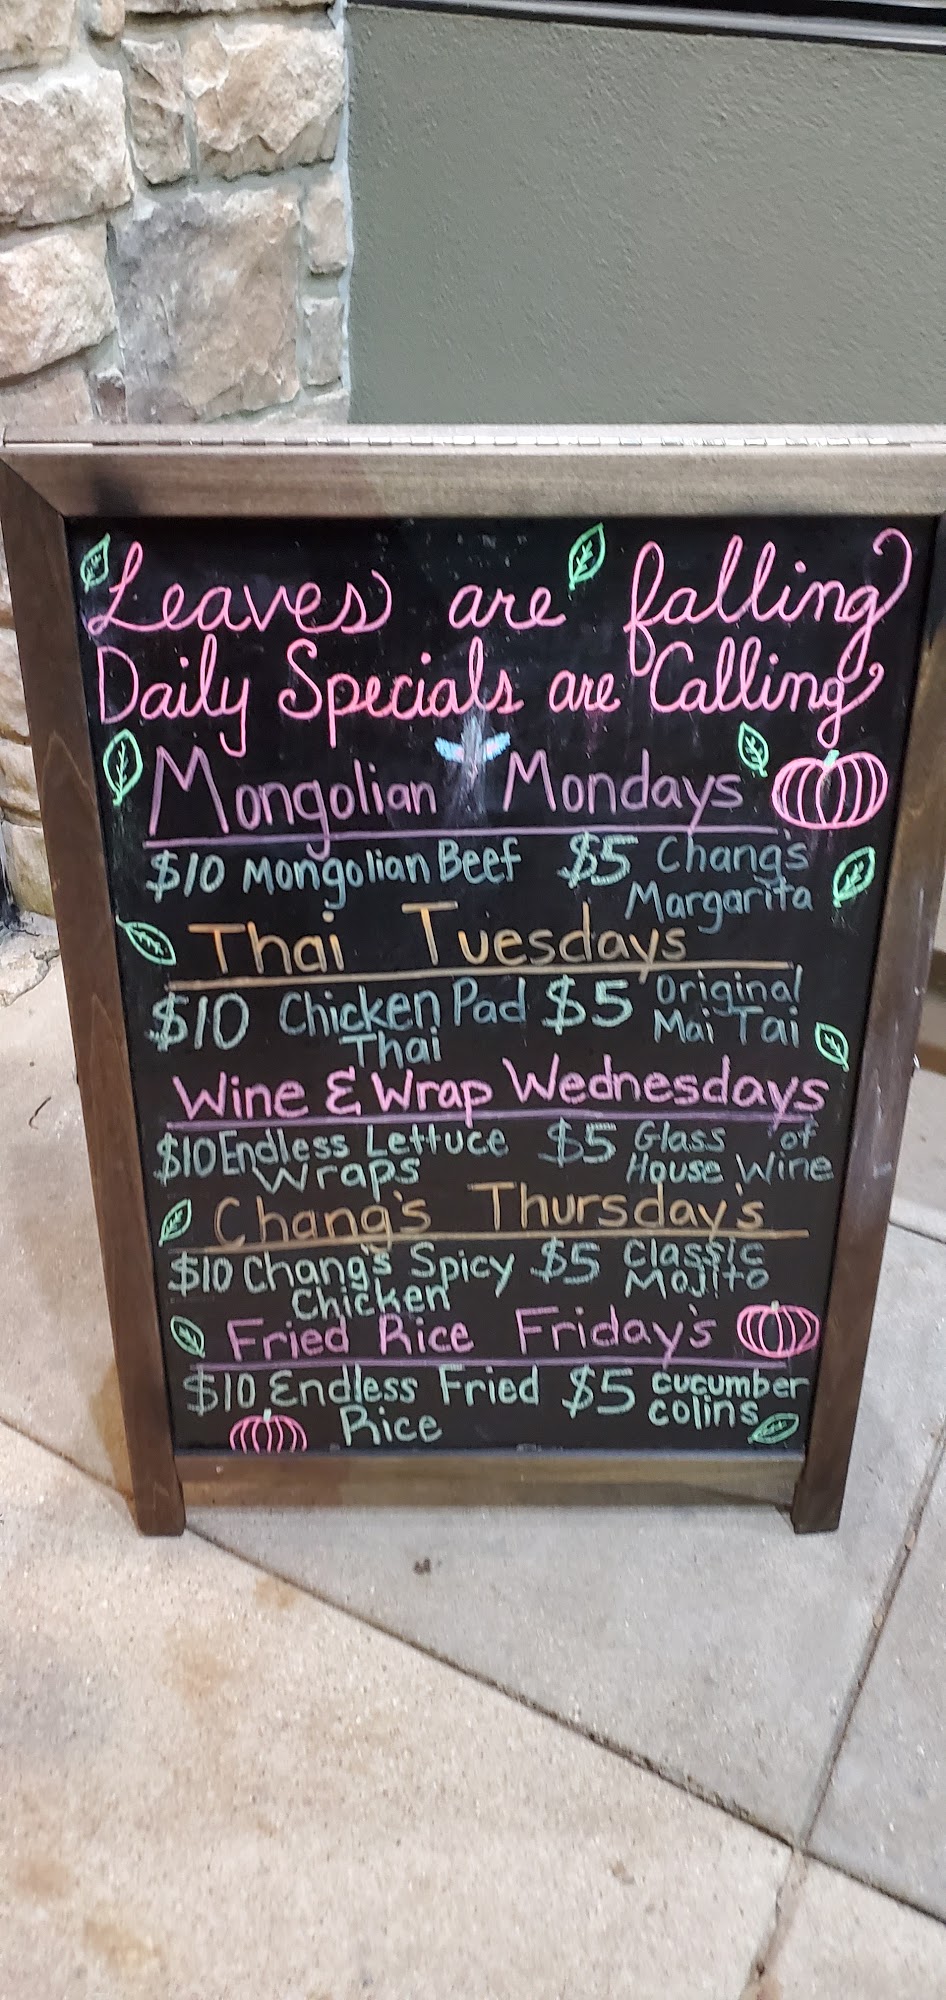 Leaves are falling
Daily Specials are Calling
Mongolian Mondays
$10 Mongolian Beef $5 Chang's
Margarita
Thai Tuesdays
$10 Chicken Pad $5 Original
Thai Mai Tai
Wine & Wrap Wednesdays
$10 Endless Lettuce $5 Glass of
Wraps House Wine
Chang's Thursday's
$10 Chang's Spicy $5 Classic
Chicken Mojito
Fried Rice Friday's
$10 Endless Fried $5 cucumber
Rice colins